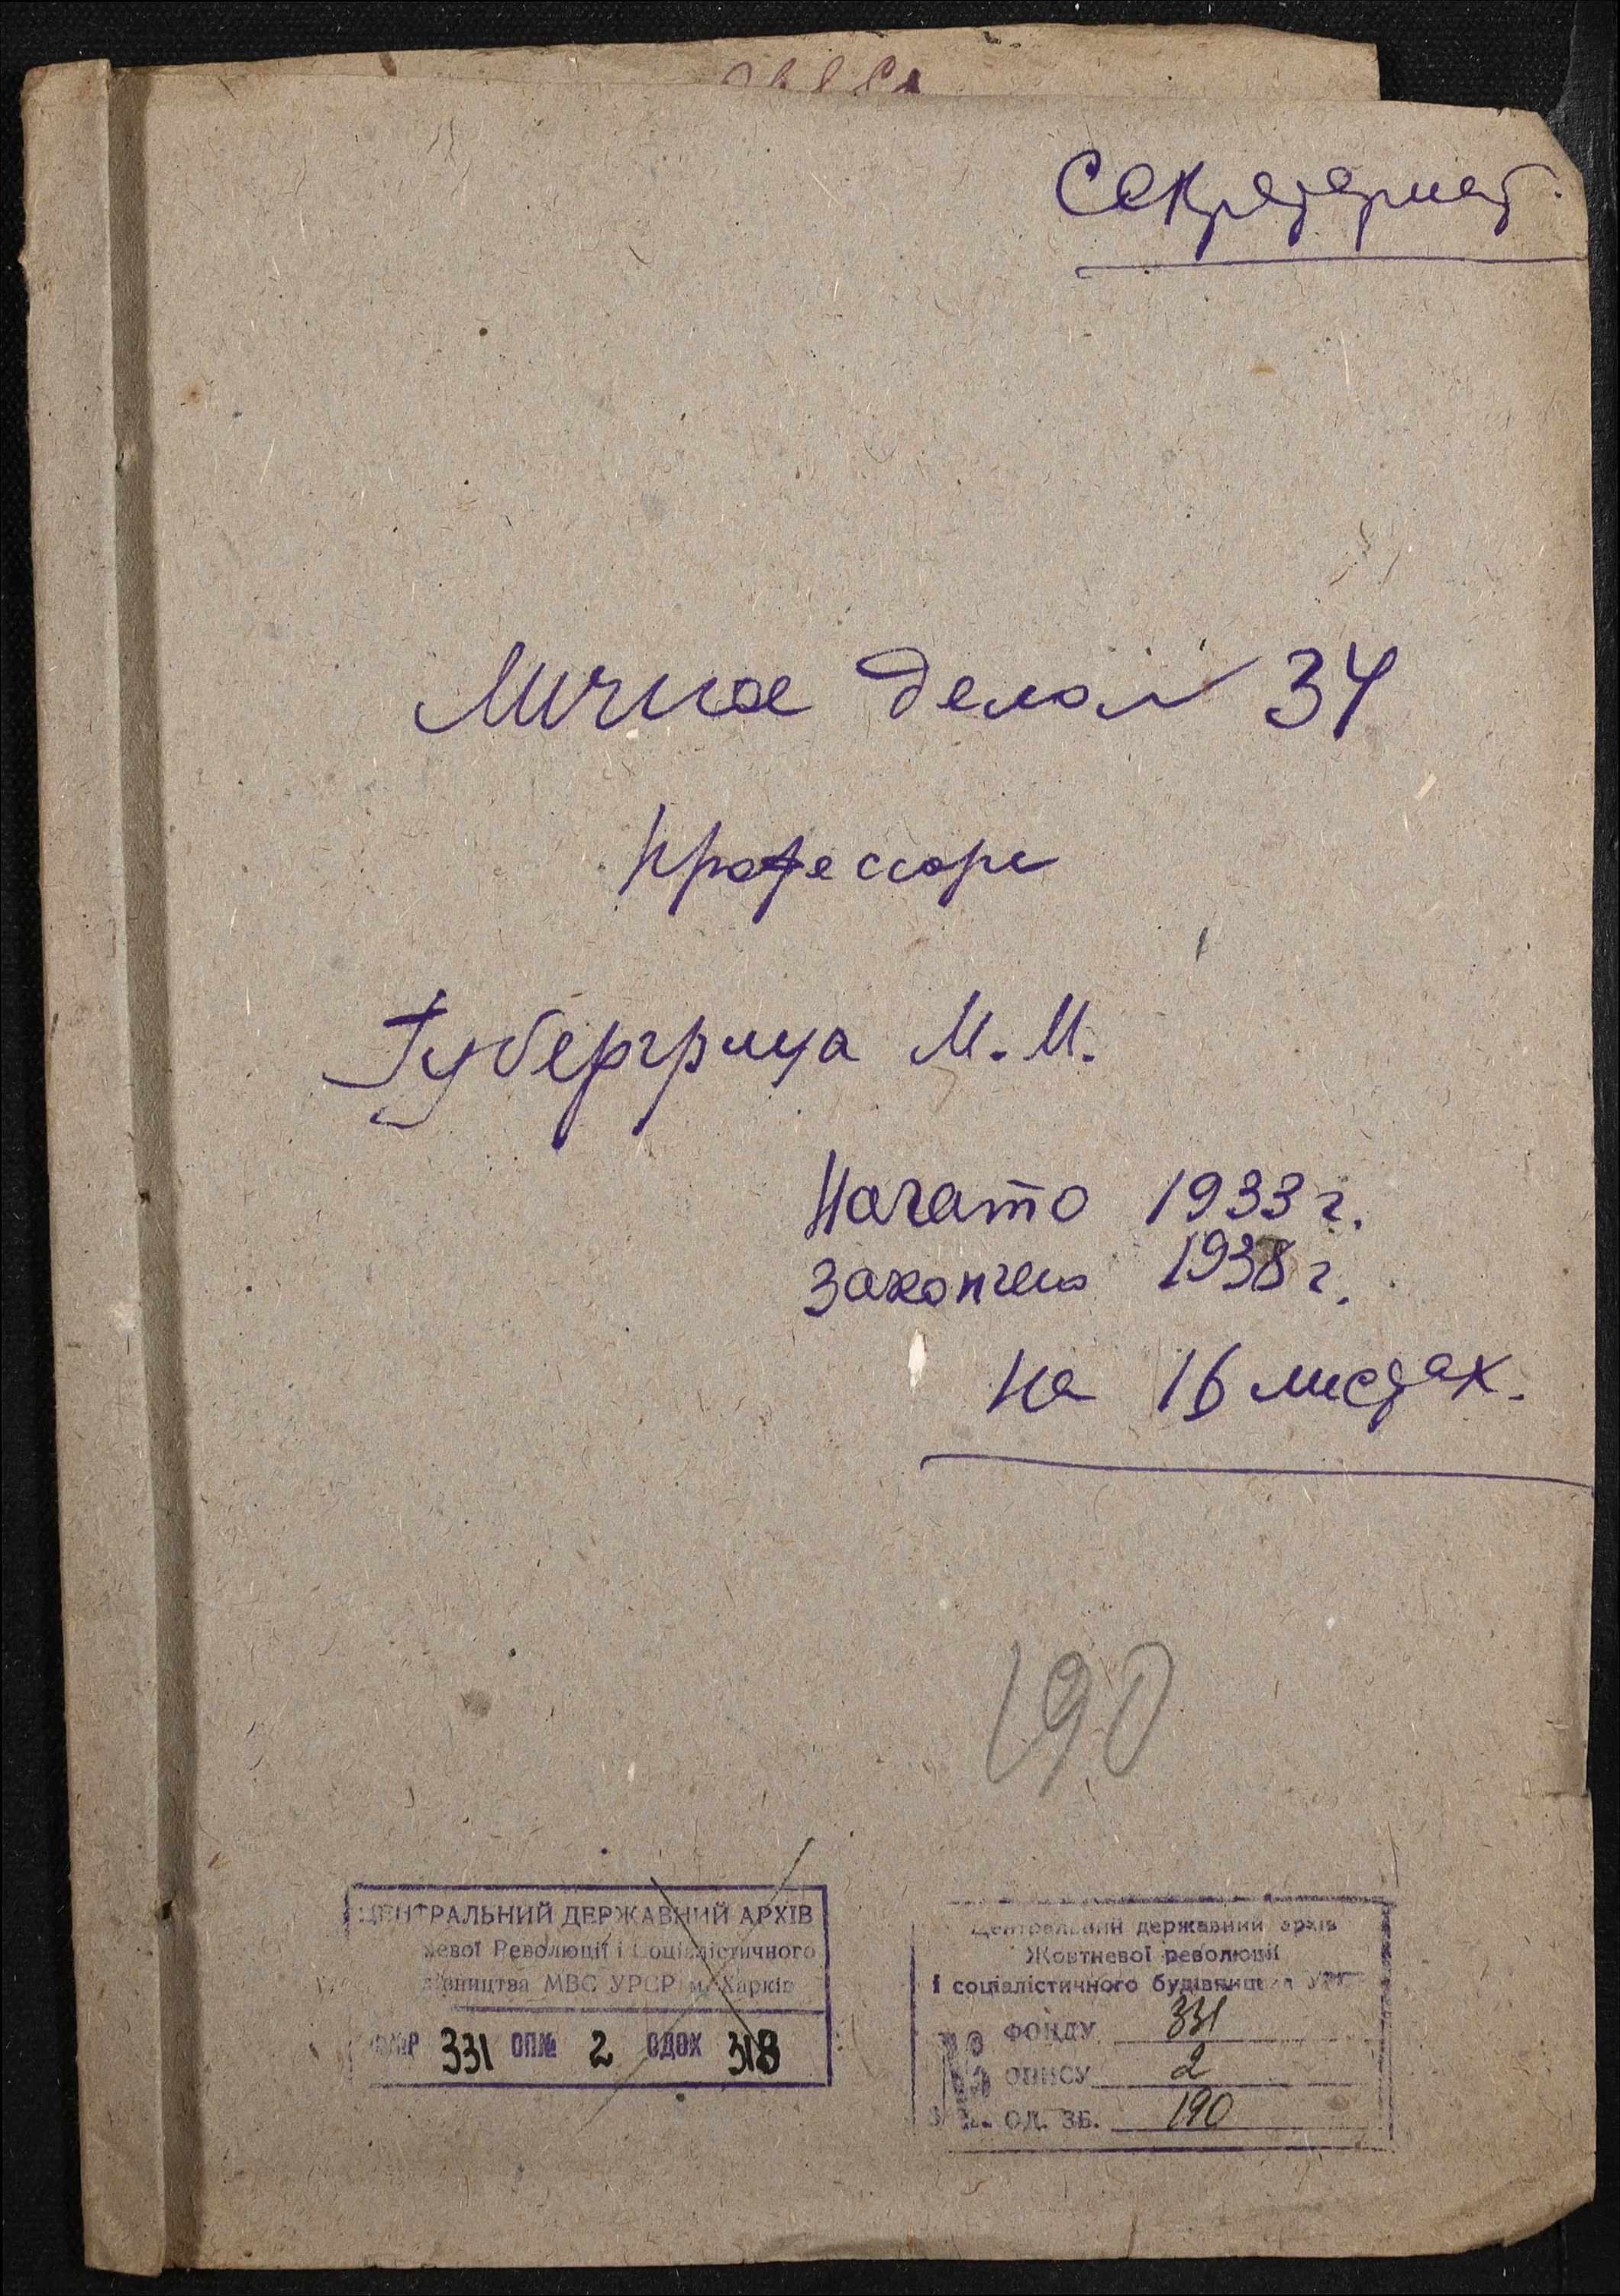 Секретариат.
Личное дело № 34
профессора
Губергрица М. М.
Начато 1933 г.
Закончено 1938 г.
На 16 листах.
190
ЦЕНТРАЛЬНИЙ ДЕРЖАВНИЙ АРХІВ
Революції і Соціалістичного
МВС УРСР м. Харків
331 ОП№ 2 ОДОХ 318
Центральний державний архів
Жовтневої революції
і соціалістичного будівництва УРСР
ФОНДУ 331
ОПИСУ 2
ОД. ЗБ. 190